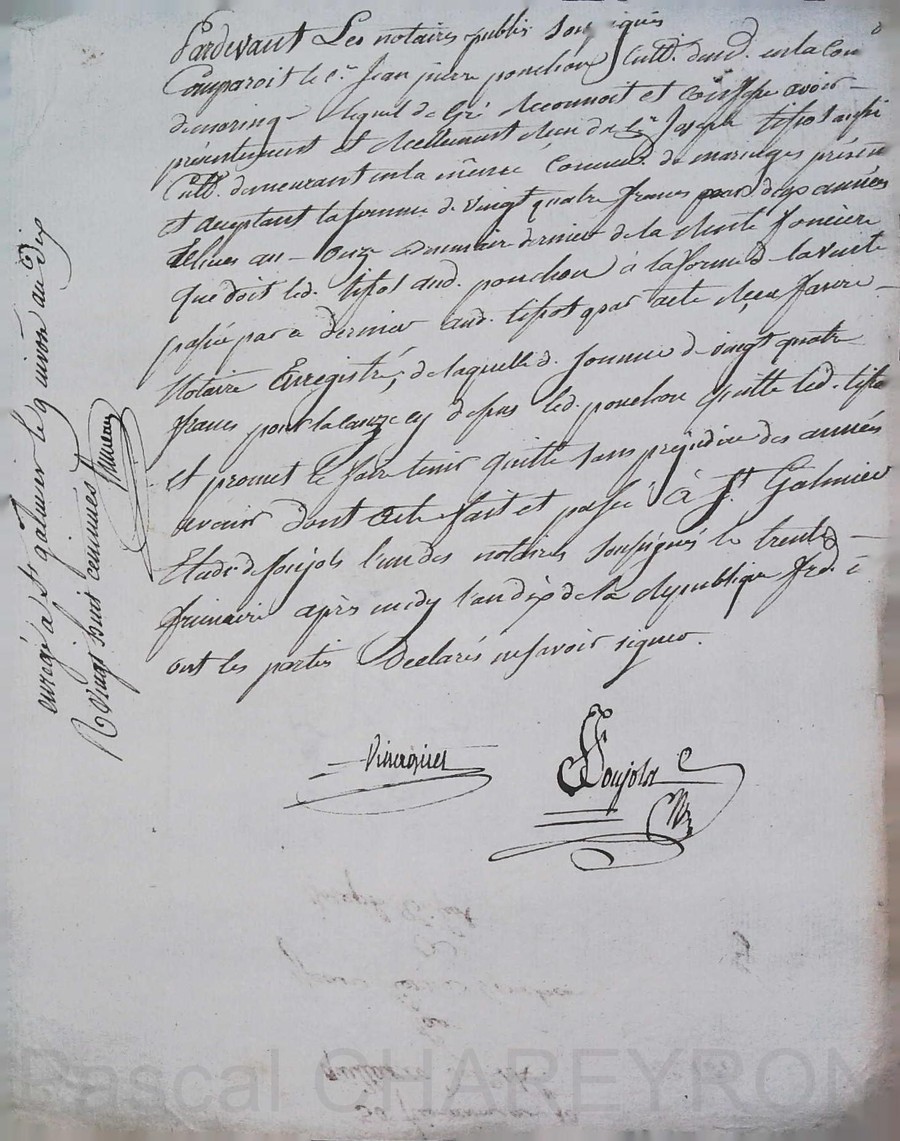 Pardevant Les notaires publics soussignés
Comparoit le sr. Jean pierre ponchon Cultr. demt. en la Com
de maringe lequel de Gré Reconnoit et Confesse avoir
présentement et Réellement Reçu de sr. Joseph tissot aussi
Cultr. demeurant en la même Commune de maringes présent
et acceptant la somme de vingt quatre francs pour deux années
Echues au onze dernier de la Rente fonciere
que doit led. tissot aud. ponchon à la forme de la vente
passée par ce dernier aud. tissot par acte Reçu favre
Notaire Enregistré, de laquelle d. somme de vingt quatre
francs pour la cauze cy dessus led. ponchon quitte led. tissot
et promet le faire tenir quitte sans préjudice des années
avenir dont acte fait et passé à St. Galmier
Etude de soujols l'un des notaires soussignés le trente
frimaire après midy l'an dix de la Republique fse. et
ont les parties Declarés ne savoir signer.
enregé à St galmier le 9 nivose an dix
R vingt huit centimes
Soujols
Nre
Pascal CHAREYRON